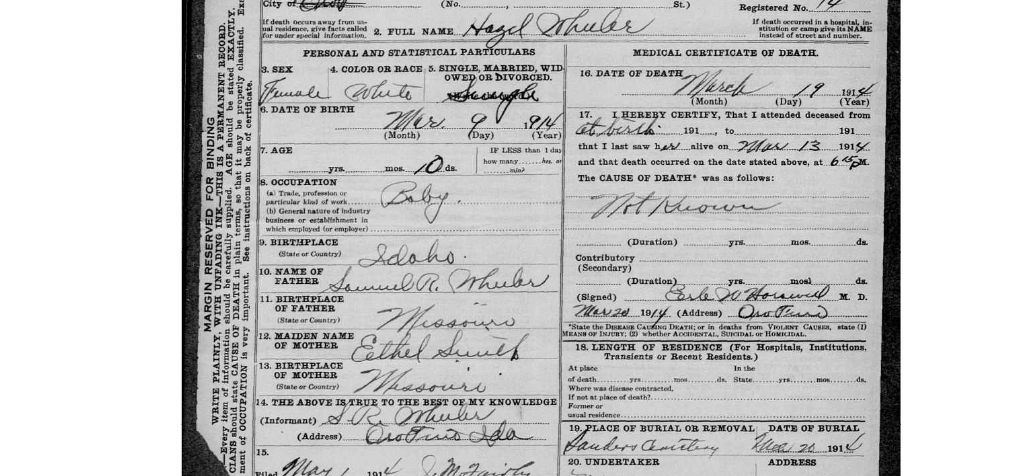 City of (No. St.) Registered No. 14
If death occurs away from usual residence, give facts called for under special information.
2. FULL NAME Hazel Wheeler
If death occurred in a hospital, institution or camp give its NAME instead of street and number.
PERSONAL AND STATISTICAL PARTICULARS
3. SEX 4. COLOR OR RACE 5. SINGLE, MARRIED, WIDOWED, OR DIVORCED.
Female White
6. DATE OF BIRTH
Mar. 9 1914
(Month) (Day) (Year)
7. AGE
IF LESS than 1 day
how many hrs. or min.
yrs. mos. 10 ds.
8. OCCUPATION
(a) Trade, profession or particular kind of work
Baby.
(b) General nature of industry business or establishment in which employed (or employer)
9. BIRTHPLACE
(State or Country)
Idaho.
10. NAME OF FATHER
Samuel R. Wheeler
11. BIRTHPLACE OF FATHER
(State or Country)
Missouri
12. MAIDEN NAME OF MOTHER
Ethel Smith
13. BIRTHPLACE OF MOTHER
(State or Country)
Missouri
14. THE ABOVE IS TRUE TO THE BEST OF MY KNOWLEDGE
(Informant) S. R. Wheeler
(Address) Orofino Ida
15.
Filed May 1 1914
MEDICAL CERTIFICATE OF DEATH.
16. DATE OF DEATH
March 19 1914
(Month) (Day) (Year)
17. I HEREBY CERTIFY, That I attended deceased from
at birth 191 , to 191
that I last saw her alive on Mar 13 1914
and that death occurred on the date stated above, at 6 M.
The CAUSE OF DEATH* was as follows:
Not Known
(Duration) yrs. mos. ds.
Contributory
(Secondary)
(Duration) yrs. mos. ds.
(Signed) Earle W Horswell M. D.
Mar 20 1914 (Address) Orofino
*State the DISEASE CAUSING DEATH; or in deaths from VIOLENT CAUSES, state (1)
MEANS OF INJURY; (2) whether ACCIDENTAL, SUICIDAL OR HOMICIDAL.
18. LENGTH OF RESIDENCE (For Hospitals, Institutions,
Transients or Recent Residents.)
At place In the
of death yrs. mos. ds. State yrs. mos. ds.
Where was disease contracted,
If not at place of death?
Former or
usual residence
19. PLACE OF BURIAL OR REMOVAL DATE OF BURIAL
Sanders Cemetery Mar 20 1914
20. UNDERTAKER ADDRESS
MARGIN RESERVED FOR BINDING
WRITE PLAINLY, WITH UNFADING INK—THIS IS A PERMANENT RECORD.
—Every item of information should be carefully supplied. AGE should be stated EXACTLY.
CIANS should state CAUSE OF DEATH in plain terms, so that it may be properly classified. Ex
ment of OCCUPATION is very important. See instructions on back of certificate.